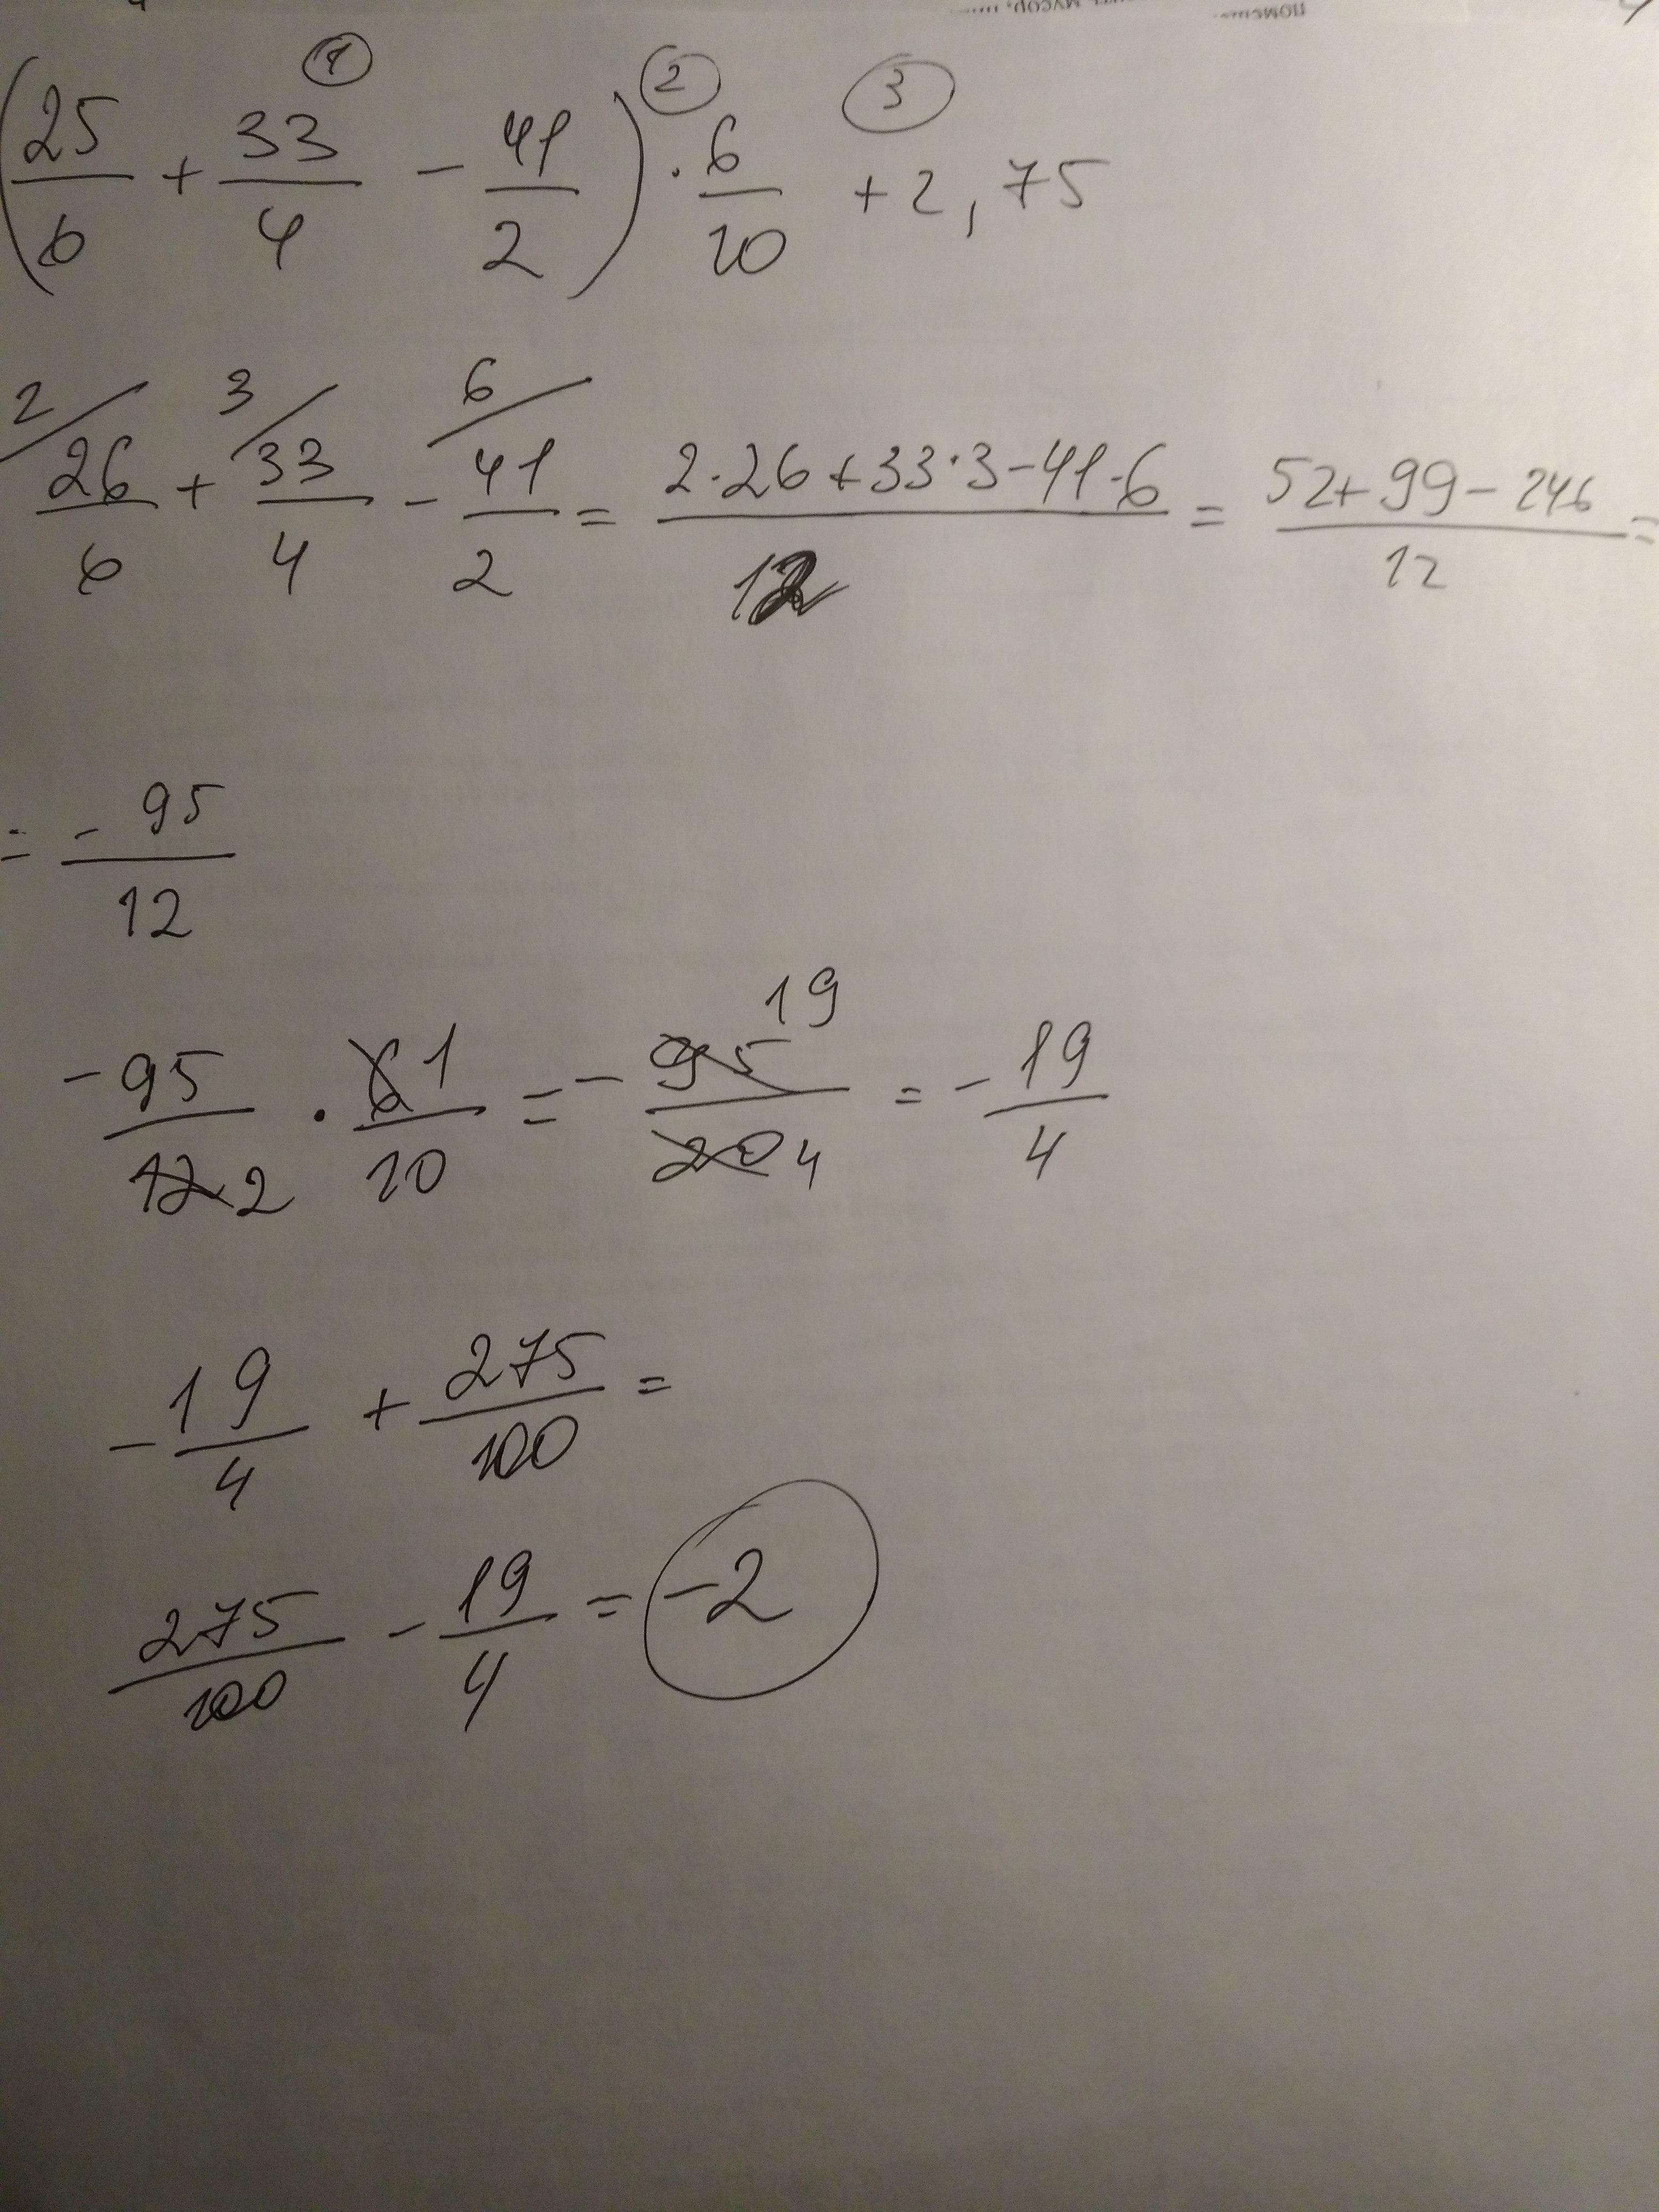 ① ② ③
(25/6 + 33/4 - 41/2) · 6/10 + 2,75
2/ 3/ 6/
26/6 + 33/4 - 41/2 = (2·26+33·3-41·6)/12 = (52+99-246)/12 =
= -95/12
-95/12 2 · 6 1/10 = - 95 19/20 4 = - 19/4
- 19/4 + 275/100 =
275/100 - 19/4 = -2